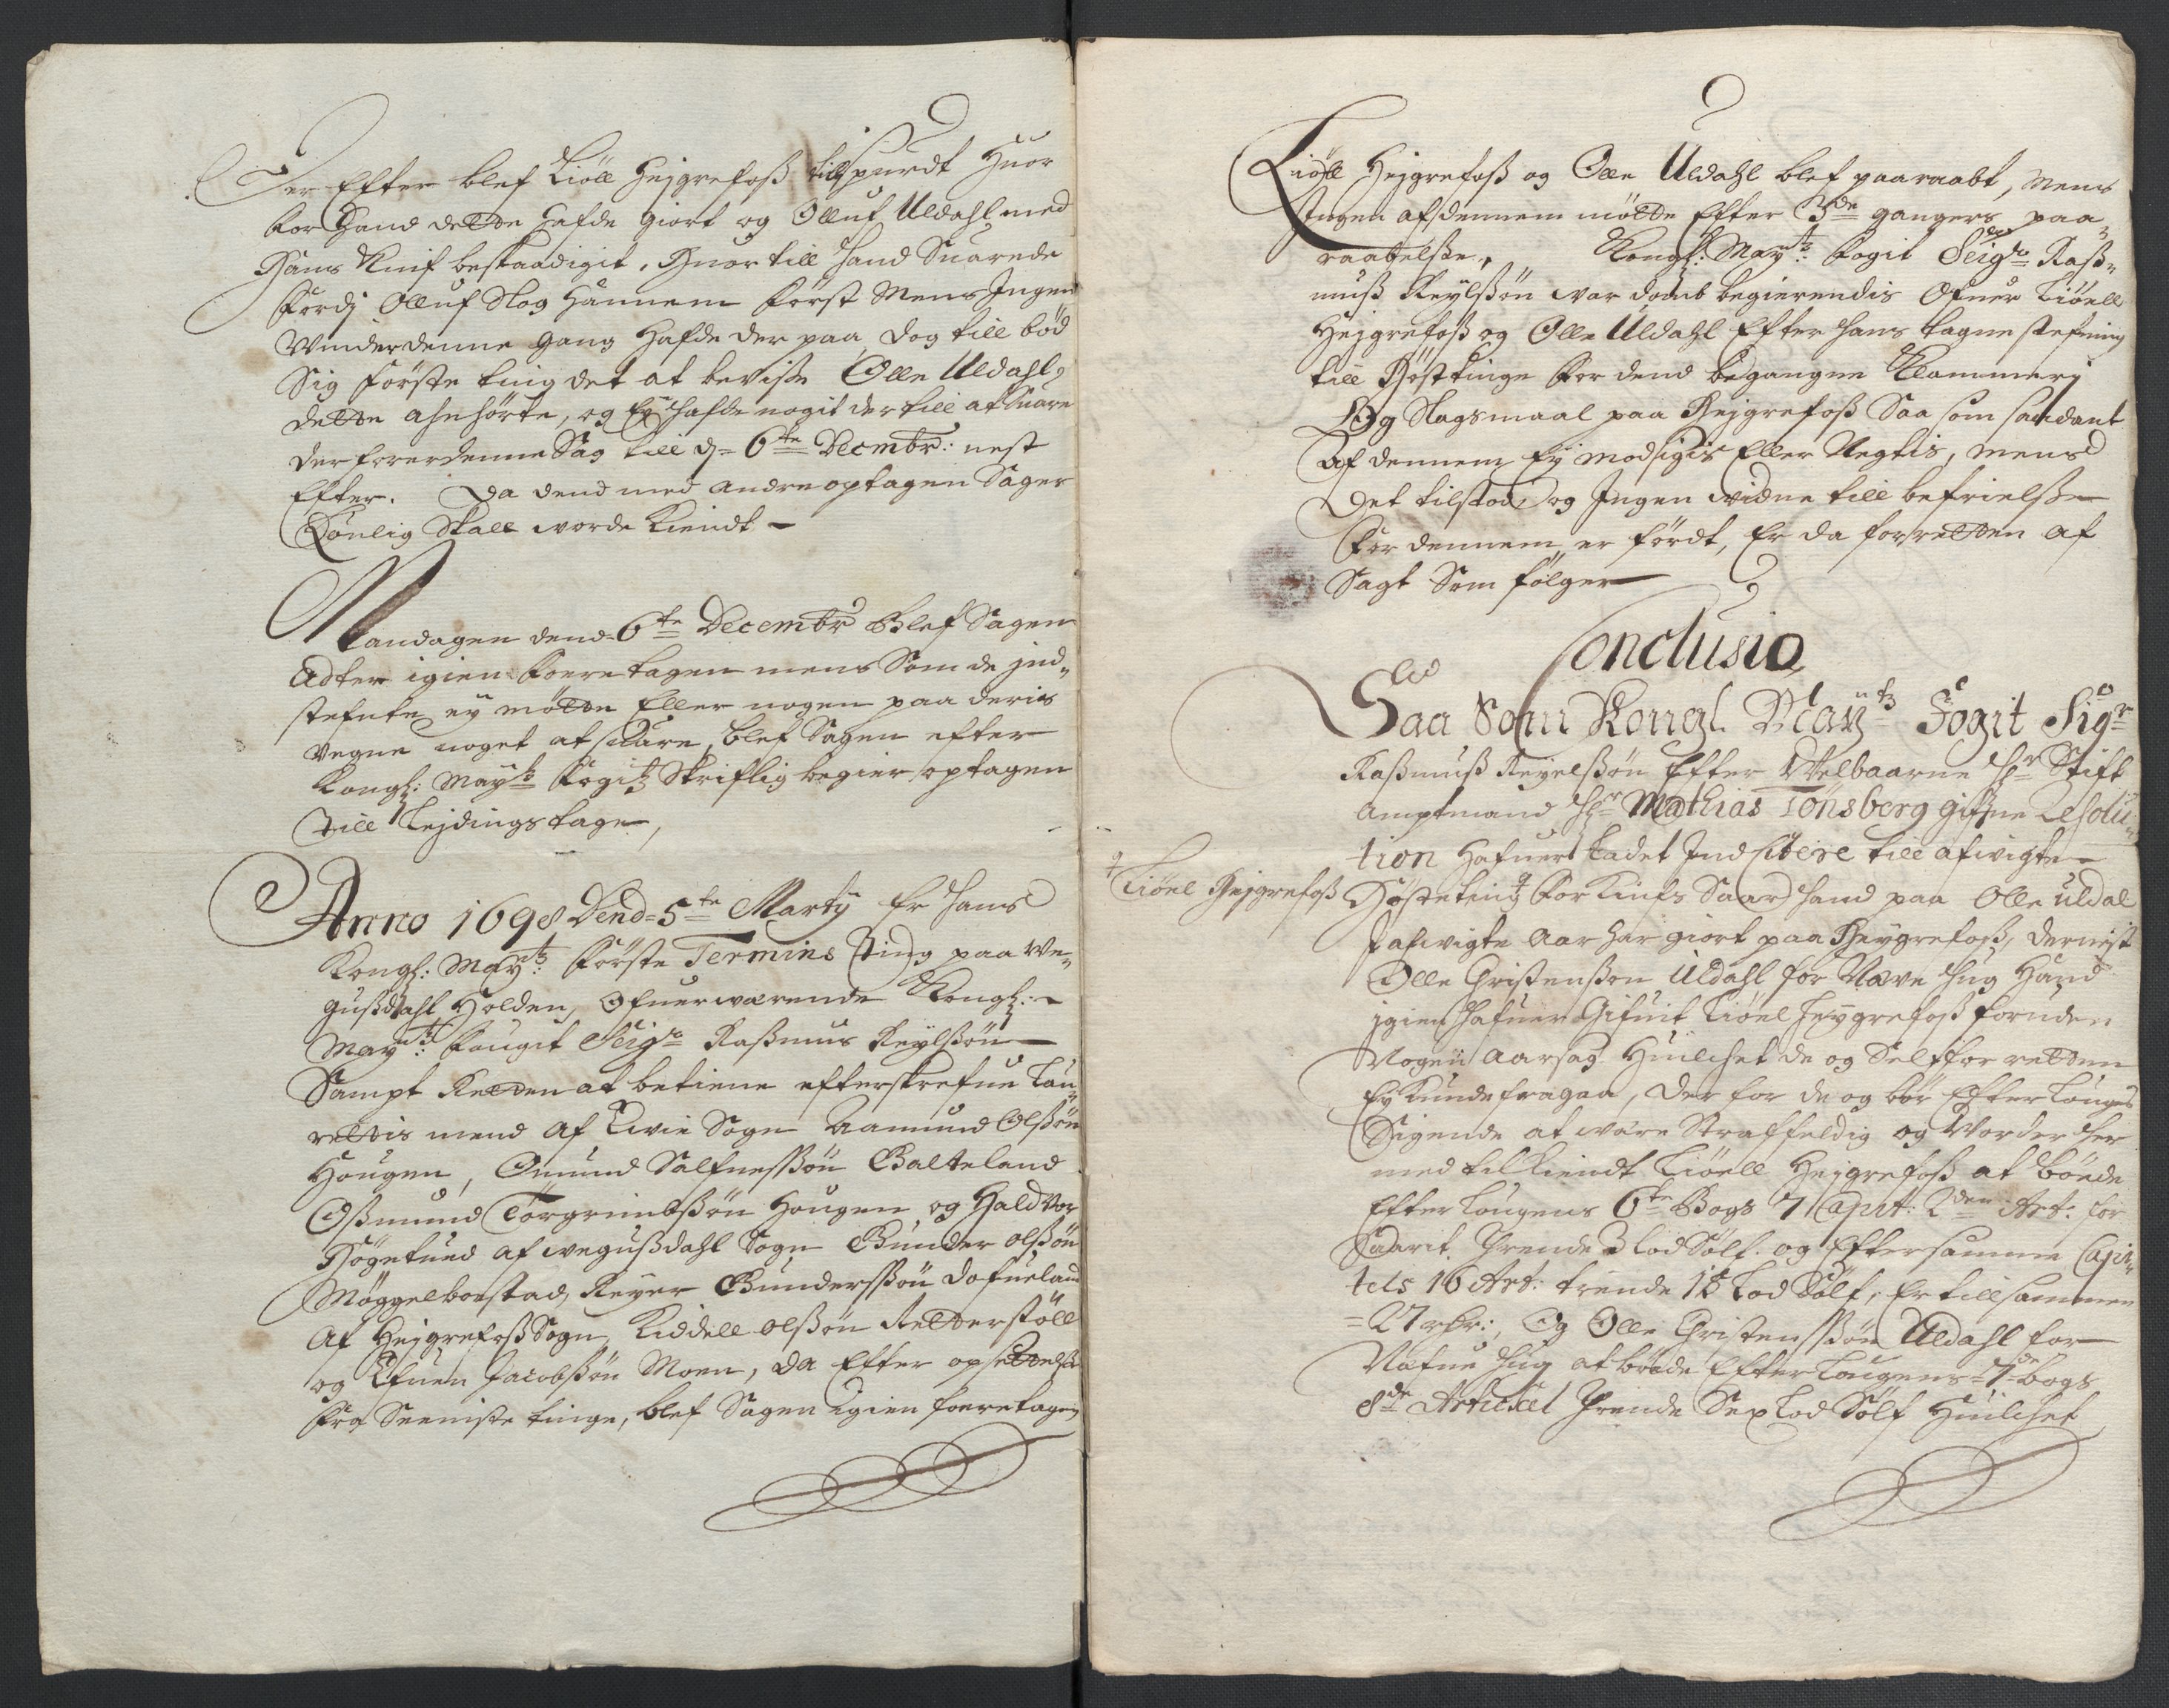 Der Efter blef Kiöll Hejgrefoss tillspurdt Huor
for Hand dette Hafde giort og Olluf Uldahl med
Hans Knif beskaadigit, Huor till Hand Suarede
fordj Olluf Slog Hannem först Mens Ingen
Vinder denne gang Hafde der paa, dog till bød
Sig förste ting det at bevisse Olle Uldahl,
dette ahnhörte, og Ey Hafde nogit der till at Suare
der forer denne Sag till d= 6te Decembr: nest
Efter. Da dend med andre optagen Sager
Endelig Skall vorde Kiendt –
Mandagen dend= 6te Decembr Blef Sagen
Adter igien foeretagen mens Som de jnd¬
stefnte ey mötte Eller nogen paa deris
vegne noget at suare, blef Sagen efter
Kongl: Maytz fogitz Skriftlig begier optagen
till Lejdingsbage,
Anno 1698 Dend= 5te Marty Er Hans
Kongl: Maytz: förste Termins ting paa We¬
gussdahl Holden, Ofuerwærende Kongl:
Maytz: fougit Seigr Rassmus Keylssön
Sampt Retten at betiene efterskrefne Lau¬
rettis mend af Evie Sogn Aamund Olssön
Hougen, Omund Salfuessön Galteland
Ossmund Torgrimbssön Hougen og Haldvor
Högetued af wegussdahl Sogn Gunder olssön
Møggelbostad, Reyer Gunderssön dofueland
Af Hejgrefoss Sogn, Kiddell olssön Retterstöll
og Efuen Jacobssön Moen, da Efter opsettelsse
fra Seeniste tinge, blef Sagen igien foretagen
Kiöll Hejgrefoss og Olle Uldahl blef paaraabt, mens
Ingen af dennem mötte Efter 3de gangers paa¬
raabelsse, Kongl: Maytz: fogit Seigr Rass¬
muss Keylssön war domb begierendis Ofuer Kiöell
Hejgrefoss og Olle Uldahl Efter Hans tagne stefning
till Høstinge for dend begangne Klammerj
Og Slagsmaal paa Hejgrefoss Saa som saadant
af dennem Ey modsigis Eller Negtis, mens
det tilstod, og Ingen vidne till befrielsse
for dennem er fördt, Er da forretten af
Sagt Som følger
Conclusio
Saa Som Kongl. Maytz Fogit Sigr
Rassmuss Keyelssön Efter Welbaarne Hr Stift
amptmand Hr Mathias Tönsberg gifne Resolu¬
tion Hafuer ladet Ind citere till afvigte
Kiöel Hejgrefoss Høsteting for Knifs Saar Hand paa Olle uldal
J afvigte Aar har giort paa Heygrefoss, dernest
Olle Christenssøn Uldahl for Næve Hug Hand
jgien Hafuer Gifuit Kiöel Heygrefoss foruden
Nogen Aarsag Huilchet de og Self for retten
Ey Kunde fragaa, Der for de og bör Efter Lougens
Sigende at være Straffeldig og Worder Her
med tilkiendt Kiöell Hejgrefoss at böede
Efter Lougens 6te Bogs 7 Capit: 2den Art: for
Saarit trende 3 lod Sölf. og Efter samme Capit¬
tels 16 Art: trende 18 Lod Sölf, Er tillsammen
=27 rdr:, Og Olle Christenssön Uldahl for
Næfue Hug at böede Efter Lougens 7de bogs
8de Artickel Trende Sex Lod Sölf Huilchet